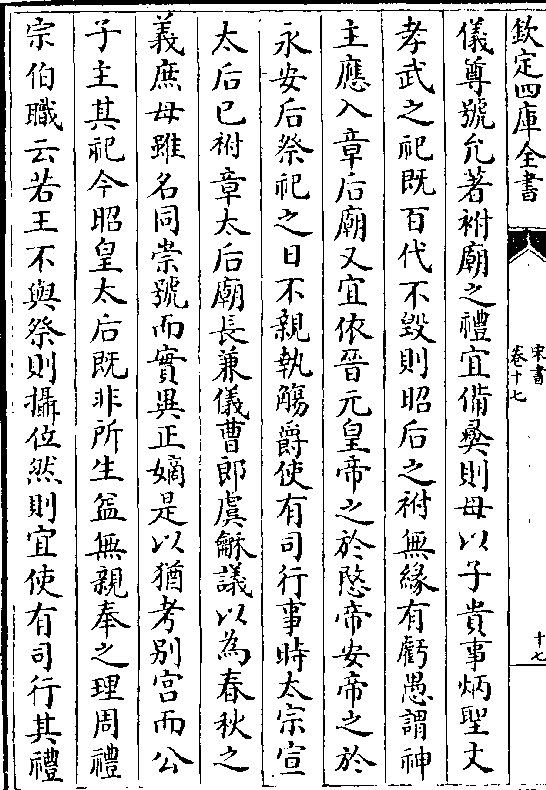 欽定四庫全書
宋書
卷十七
十七
儀尊號允著祔廟之禮宜備彝則母以子貴事炳聖文
孝武之祀既百代不毀則昭后之祔無緣有虧愚謂神
主應入章后廟又宜依晉元皇帝之於愍帝安帝之於
永安后祭祀之日不親執觴爵使有司行事時太宗宣
太后已祔章太后廟長兼儀曹郎虞龢議以為春秋之
義庶母雖名同崇號而實異正嫡是以猶考别宮而公
子主其祀今昭皇太后既非所生益無親奉之理周禮
宗伯職云若王不與祭則攝位然則宜使有司行其禮